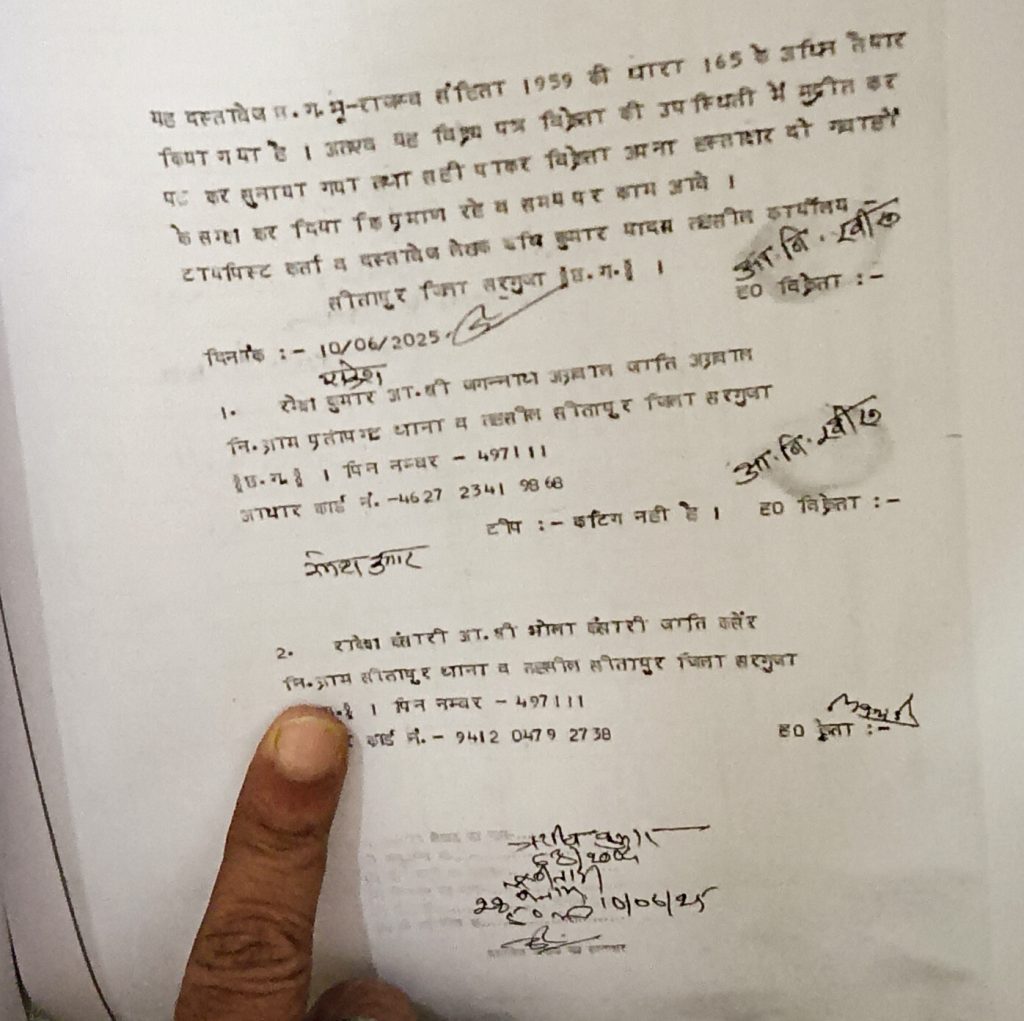 यह दस्तावेज छ.ग.भू-राजस्व संहिता 1959 की धारा 165 के अधिन तैयार
किया गया है । अतएव यह विक्रय पत्र विक्रेता की उपस्थिती में मुद्रीत कर
पढ कर सुनाया गया तथा सही पाकर विक्रेता अपना हस्ताक्षर दो गवाहों
के समक्ष कर दिया कि प्रमाण रहे व समय पर काम आवे ।
टायपिस्ट कर्ता व दस्तावेज लेखक कुमार यादव तहसील कार्यालय -
सीतापुर जिला सरगुजा §छ.ग.§ ।
आ.नि.
ह0 विक्रेता :-
दिनांक :- 10/06/2025
1. कुमार आ.श्री जगन्नाथ अग्रवाल जाति अग्रवाल
नि.ग्राम प्रतापगढ थाना व तहसील सीतापुर जिला सरगुजा
§छ.ग.§ । पिन नम्बर - 497111
आधार कार्ड नं.-4627 2341 9868
आ.नि.
टीप :- कटिंग नही है । ह0 विक्रेता :-
कुमार
2. राकेश कंसारी आ.श्री भोला कंसारी जाति कसेर
नि.ग्राम सीतापुर थाना व तहसील सीतापुर जिला सरगुजा
.§ । पिन नम्बर - 497111
कार्ड नं.- 9412 0479 2738
ह0 क्रेता :-
10/06/25